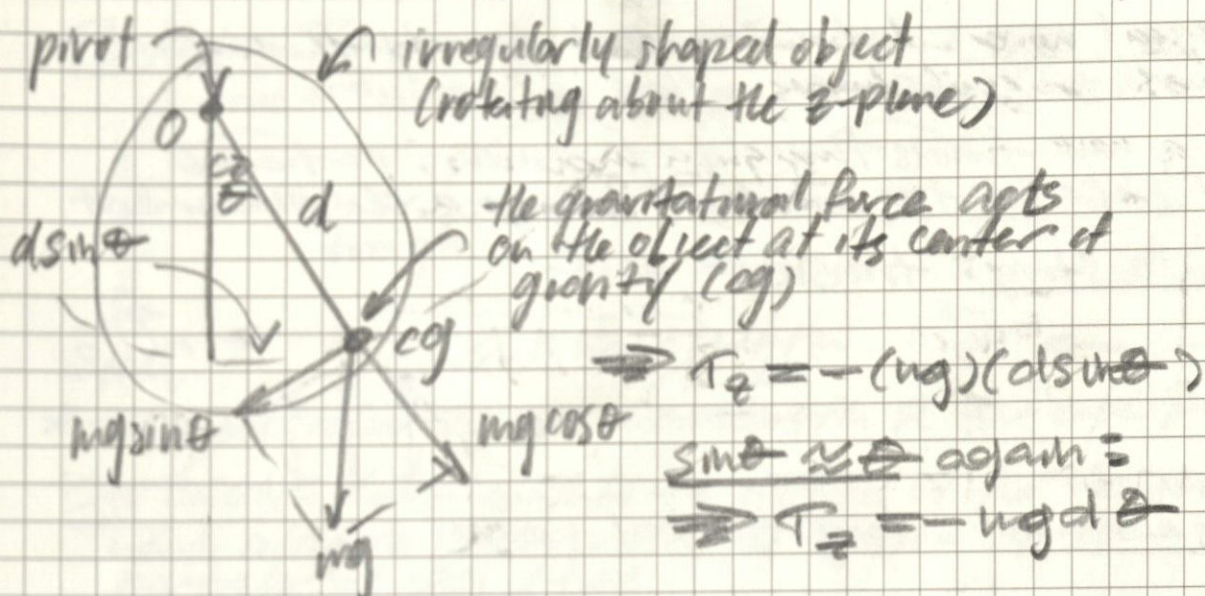 pivot
irregularly shaped object
(rotating about the z-plane)
O
θ
d
dsinθ
the gravitational force acts
on the object at its center of
gravity (cg)
cg
⇒ τz = -(mg)(dsinθ)
mgsinθ
mgcosθ
sinθ ≈ θ again:
⇒ τz = -mgdθ
mg